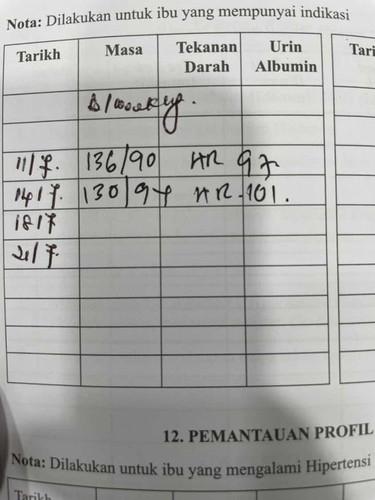 Nota: Dilakukan untuk ibu yang mempunyai indikasi
Tarikh Masa Tekanan Darah Urin Albumin Tari
B/weekly.
11/7. 136/90 HR 97
14/7. 130/94 HR-101.
18/7
21/7.
12. PEMANTAUAN PROFIL
Nota: Dilakukan untuk ibu yang mengalami Hipertensi
Tarikh